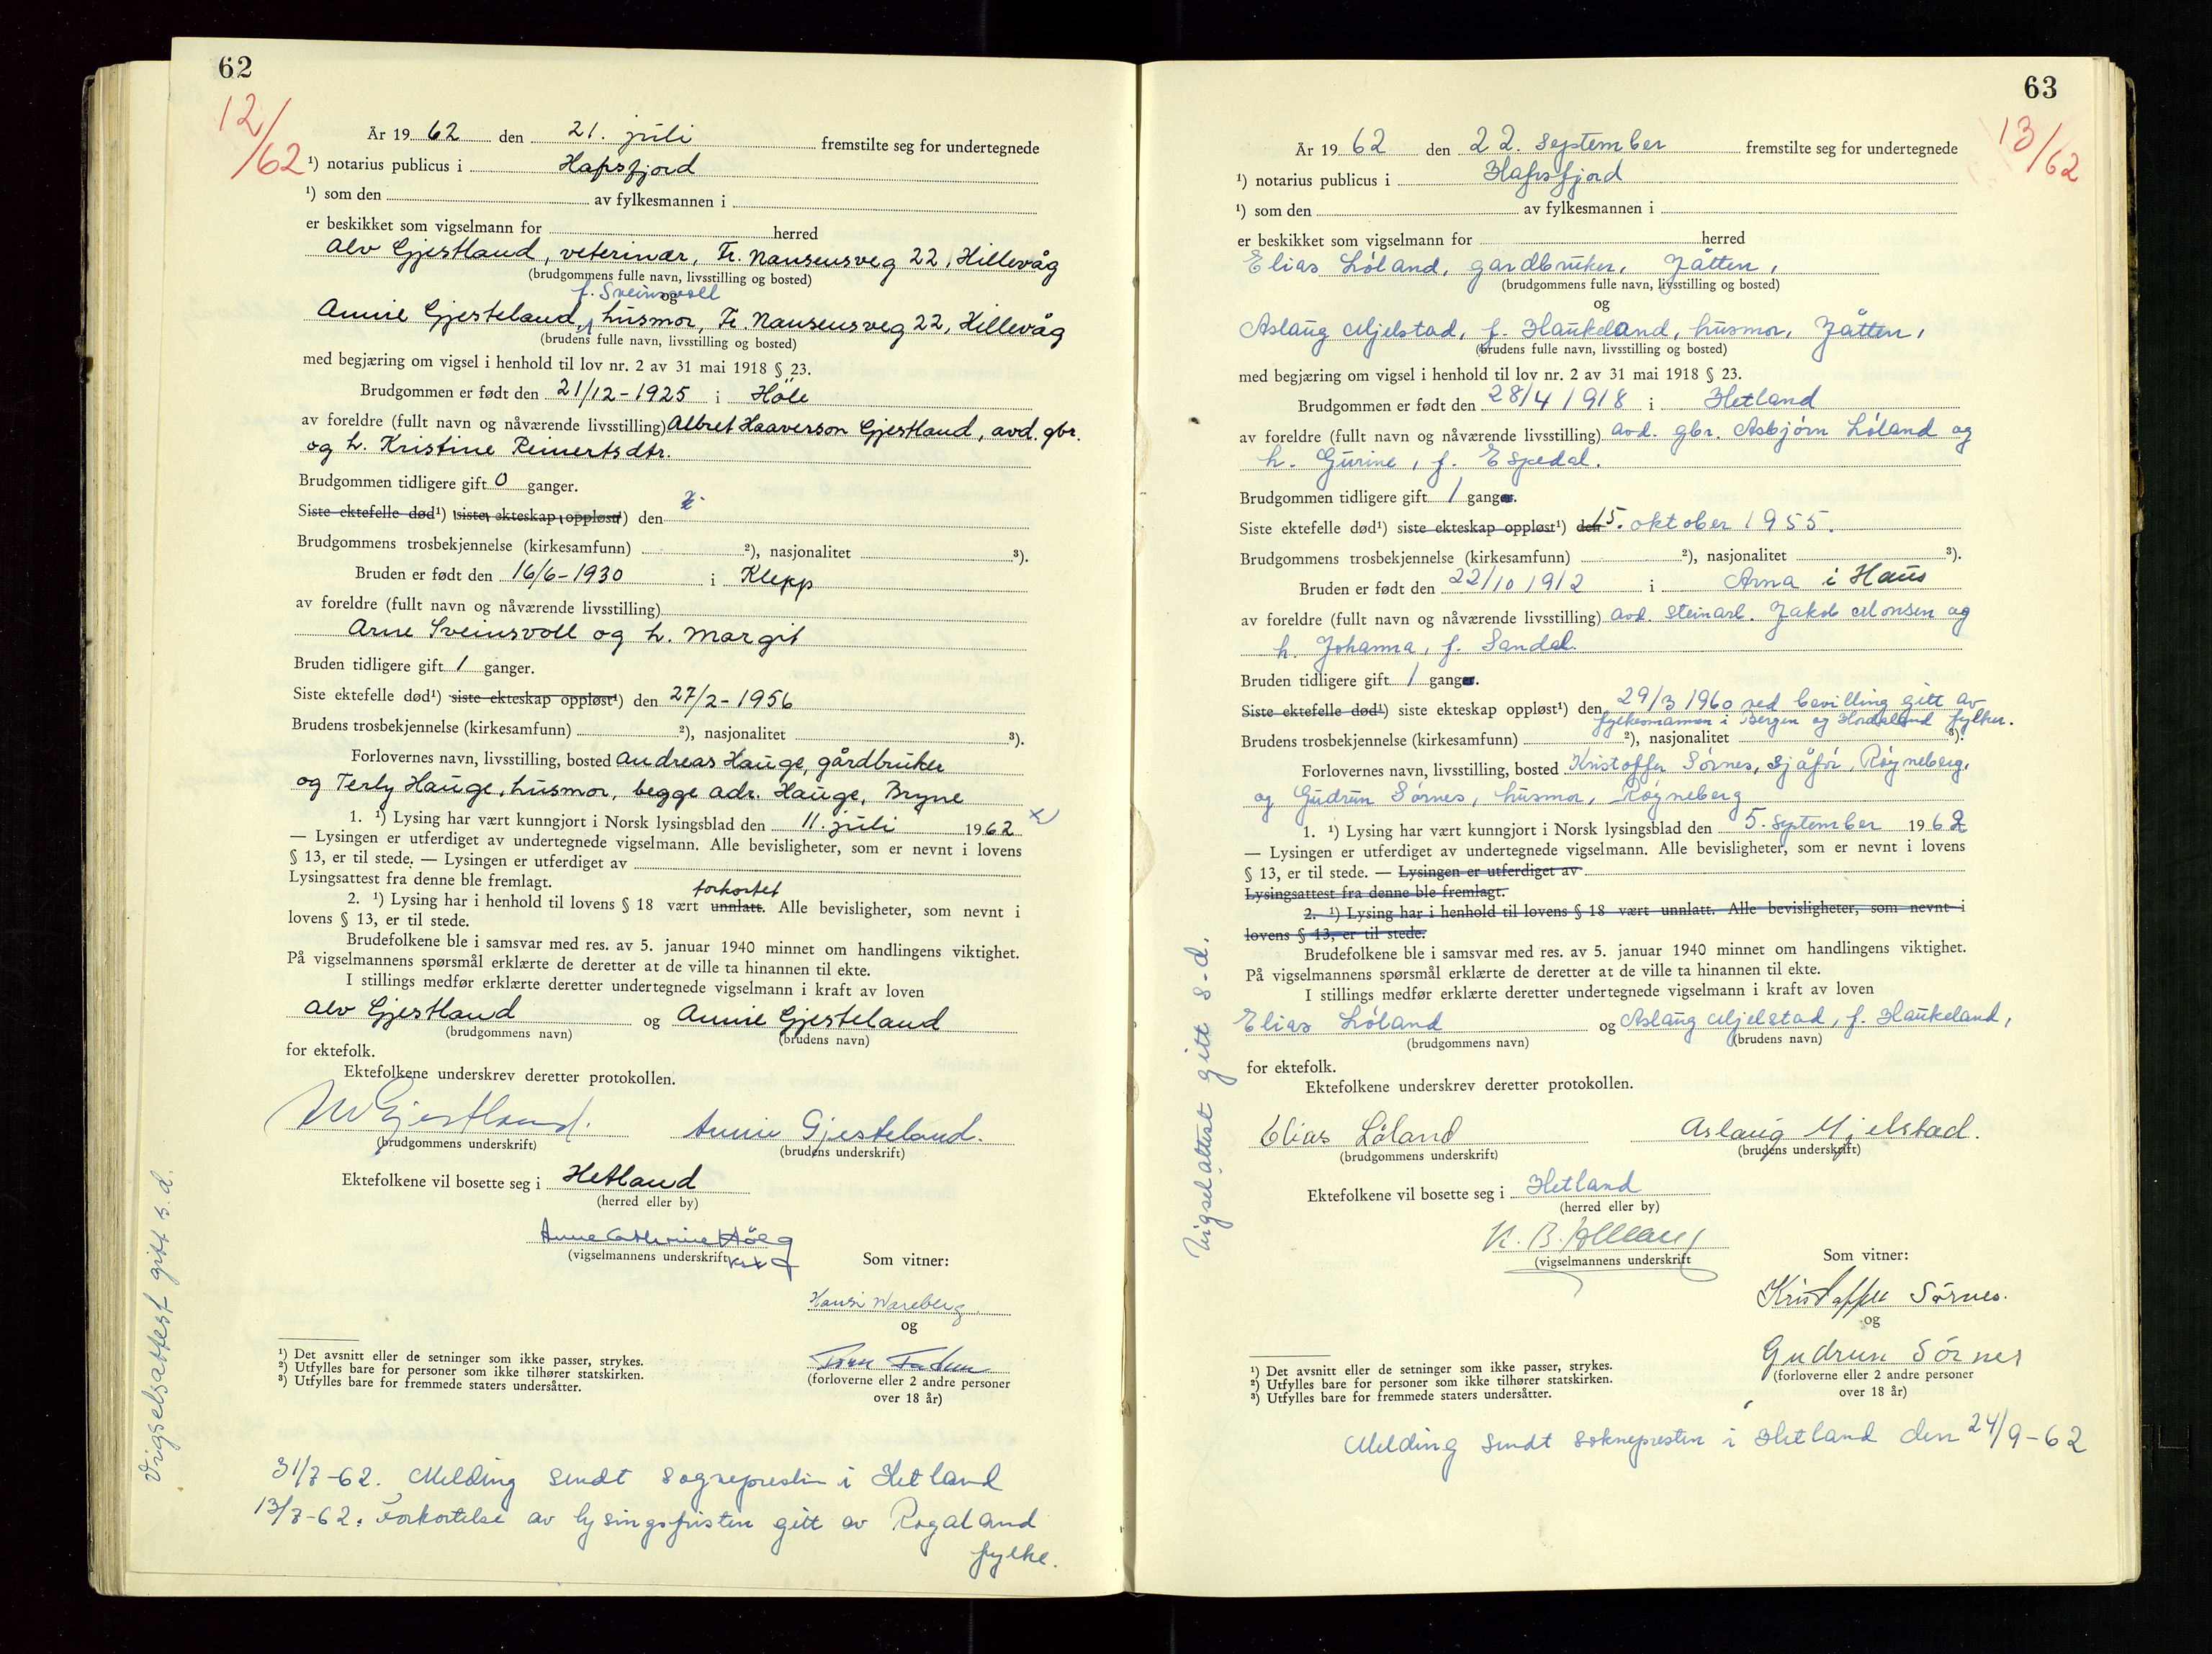 62
12/62
År 19 62 den 21. juli fremstilte seg for undertegnede
¹) notarius publicus i Hafrsfjord
¹) som den av fylkesmannen i
er beskikket som vigselmann for herred
Alv Gjestland, veterinær, Fr. Nansensveg 22, Hillevåg
(brudgommens fulle navn, livsstilling og bosted)
og f. Sveinsvoll
Annie Gjesteland, husmor, Fr. Nansensveg 22, Hillevåg
(brudens fulle navn, livsstilling og bosted)
med begjæring om vigsel i henhold til lov nr. 2 av 31 mai 1918 § 23.
Brudgommen er født den 21/12-1925 i Höle
av foreldre (fullt navn og nåværende livsstilling) Albret Haaverson Gjestland, avd. gbr.
og h. Kristine Reinertsdtr.
Brudgommen tidligere gift 0 ganger.
Siste ektefelle død¹) siste ekteskap oppløst¹) den
Brudgommens trosbekjennelse (kirkesamfunn) ²), nasjonalitet ³).
Bruden er født den 16/6-1930 i Klepp
av foreldre (fullt navn og nåværende livsstilling)
Arne Sveinsvoll og h. Margit
Bruden tidligere gift 1 ganger.
Siste ektefelle død¹) siste ekteskap oppløst¹) den 27/2-1956
Brudens trosbekjennelse (kirkesamfunn) ²), nasjonalitet ³).
Forlovernes navn, livsstilling, bosted Andreas Hauge, gårdbruker
og Terly Hauge, husmor, begge adr. Hauge, Bryne
1. ¹) Lysing har vært kunngjort i Norsk lysingsblad den 11. juli 1962 x)
— Lysingen er utferdiget av undertegnede vigselmann. Alle bevisligheter, som er nevnt i lovens
§ 13, er til stede. — Lysingen er utferdiget av
Lysingsattest fra denne ble fremlagt.
forkortet
2. ¹) Lysing har i henhold til lovens § 18 vært unnlatt. Alle bevisligheter, som nevnt i
lovens § 13, er til stede.
Brudefolkene ble i samsvar med res. av 5. januar 1940 minnet om handlingens viktighet.
På vigselmannens spørsmål erklærte de deretter at de ville ta hinannen til ekte.
I stillings medfør erklærte deretter undertegnede vigselmann i kraft av loven
Alv Gjestland og Annie Gjesteland
(brudgommens navn) (brudens navn)
for ektefolk.
Ektefolkene underskrev deretter protokollen.
Alv Gjestland. Annie Gjesteland.
(brudgommens underskrift) (brudens underskrift)
Ektefolkene vil bosette seg i Hetland
(herred eller by)
Anne Cathrine Höeg
(vigselmannens underskrift
Som vitner:
Hansi Wareberg
og
(forloverne eller 2 andre personer
over 18 år)
¹) Det avsnitt eller de setninger som ikke passer, strykes.
²) Utfylles bare for personer som ikke tilhører statskirken.
³) Utfylles bare for fremmede staters undersåtter.
31/7-62. Melding sendt sognepresten i Hetland
13/7-62. Forkortelse av lysingsfristen gitt av Rogaland
fylke.
Vigselsattest gitt s.d.
63
13/62
År 19 62 den 22. september fremstilte seg for undertegnede
¹) notarius publicus i Hafrsfjord
¹) som den av fylkesmannen i
er beskikket som vigselmann for herred
Elias Lóland, gardbruker, Jåtten,
(brudgommens fulle navn, livsstilling og bosted)
og
Aslaug Mjelstad, f. Haukeland, husmor, Jåtten,
(brudens fulle navn, livsstilling og bosted)
med begjæring om vigsel i henhold til lov nr. 2 av 31 mai 1918 § 23.
Brudgommen er født den 28/4 1918 i Hetland
av foreldre (fullt navn og nåværende livsstilling) avd. gbr. Asbjórn Lóland og
h. Gurine, f. Espedal.
Brudgommen tidligere gift 1 ganger.
Siste ektefelle død¹) siste ekteskap oppløst¹) den 15. oktober 1955.
Brudgommens trosbekjennelse (kirkesamfunn) ²), nasjonalitet ³).
Bruden er født den 22/10 1912 i Arna i Haus
av foreldre (fullt navn og nåværende livsstilling) avd. steinarb. Jakob Monsen og
h. Johanna, f. Sandal.
Bruden tidligere gift 1 ganger.
Siste ektefelle død¹) siste ekteskap oppløst¹) den 29/3 1960 ved bevilling gitt av
fylkesmannen i Bergen og Hordaland fylker.
Brudens trosbekjennelse (kirkesamfunn) ²), nasjonalitet ³).
Forlovernes navn, livsstilling, bosted Kristoffer Sórnes, sjåfór, Róyneberg,
og Gudrun Sórnes, husmor, Róyneberg
1. ¹) Lysing har vært kunngjort i Norsk lysingsblad den 5. september 1962
— Lysingen er utferdiget av undertegnede vigselmann. Alle bevisligheter, som er nevnt i lovens
§ 13, er til stede. — Lysingen er utferdiget av
Lysingsattest fra denne ble fremlagt.
2. ¹) Lysing har i henhold til lovens § 18 vært unnlatt. Alle bevisligheter, som nevnt i
lovens § 13, er til stede.
Brudefolkene ble i samsvar med res. av 5. januar 1940 minnet om handlingens viktighet.
På vigselmannens spørsmål erklærte de deretter at de ville ta hinannen til ekte.
I stillings medfør erklærte deretter undertegnede vigselmann i kraft av loven
Elias Lóland og Aslaug Mjelstad, f. Haukeland,
(brudgommens navn) (brudens navn)
for ektefolk.
Ektefolkene underskrev deretter protokollen.
Elias Lóland Aslaug Mjelstad.
(brudgommens underskrift) (brudens underskrift)
Ektefolkene vil bosette seg i Hetland
(herred eller by)
(vigselmannens underskrift
Som vitner:
Kristoffer Sórnes.
og
Gudrun Sórnes
(forloverne eller 2 andre personer
over 18 år)
¹) Det avsnitt eller de setninger som ikke passer, strykes.
²) Utfylles bare for personer som ikke tilhører statskirken.
³) Utfylles bare for fremmede staters undersåtter.
Melding sendt soknepresten i Hetland den 24/9-62
Vigselattest gitt s.d.